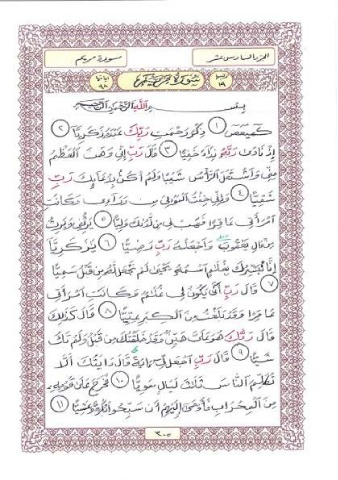 الجزء السادس عشر
سورة مريم
ترتيبها ١٩ سورة مريم آياتها ٩٨
بِسْمِ اللَّهِ الرَّحْمَٰنِ الرَّحِيمِ
كٓهيعٓصٓ ١ ذِكْرُ رَحْمَتِ رَبِّكَ عَبْدَهُ زَكَرِيَّا ٢
إِذْ نَادَىٰ رَبَّهُ نِدَاءً خَفِيًّا ٣ قَالَ رَبِّ إِنِّي وَهَنَ الْعَظْمُ
مِنِّي وَاشْتَعَلَ الرَّأْسُ شَيْبًا وَلَمْ أَكُنْ بِدُعَائِكَ رَبِّ
شَقِيًّا ٤ وَإِنِّي خِفْتُ الْمَوَالِيَ مِنْ وَرَاءِي وَكَانَتِ
امْرَأَتِي عَاقِرًا فَهَبْ لِي مِنْ لَدُنْكَ وَلِيًّا ٥ يَرِثُنِي وَيَرِثُ
مِنْ ءَالِ يَعْقُوبَ وَاجْعَلْهُ رَبِّ رَضِيًّا ٦ يَٰزَكَرِيَّا
إِنَّا نُبَشِّرُكَ بِغُلَٰمٍ اسْمُهُ يَحْيَىٰ لَمْ نَجْعَلْ لَهُ مِنْ قَبْلُ سَمِيًّا
٧ قَالَ رَبِّ أَنَّىٰ يَكُونُ لِي غُلَٰمٌ وَكَانَتِ امْرَأَتِي
عَاقِرًا وَقَدْ بَلَغْتُ مِنَ الْكِبَرِ عِتِيًّا ٨ قَالَ كَذَٰلِكَ
قَالَ رَبُّكَ هُوَ عَلَيَّ هَيِّنٌ وَقَدْ خَلَقْتُكَ مِنْ قَبْلُ وَلَمْ تَكُ
شَيْئًا ٩ قَالَ رَبِّ اجْعَلْ لِي ءَايَةً قَالَ ءَايَتُكَ أَلَّا
تُكَلِّمَ النَّاسَ ثَلَٰثَ لَيَالٍ سَوِيًّا ١٠ فَخَرَجَ عَلَىٰ قَوْمِهِ
مِنَ الْمِحْرَابِ فَأَوْحَىٰ إِلَيْهِمْ أَنْ سَبِّحُوا بُكْرَةً وَعَشِيًّا ١١
٣٠٥